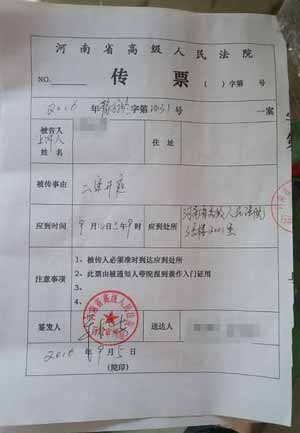 河南省高级人民法院
NO.
传票
( )字第 号
2016年 字第1031号
一案
被告人
上诉人
姓名
住址
被传事由
二审开庭
应到时间
9月 日 午9时
应到处所
河南省高级人民法院
注意事项
1、被传人必须准时到达应到处所
2、此票由被通知人带院报到兼作入门证用
3、
4、
签发人
送达人
2016年9月5日
(院印)